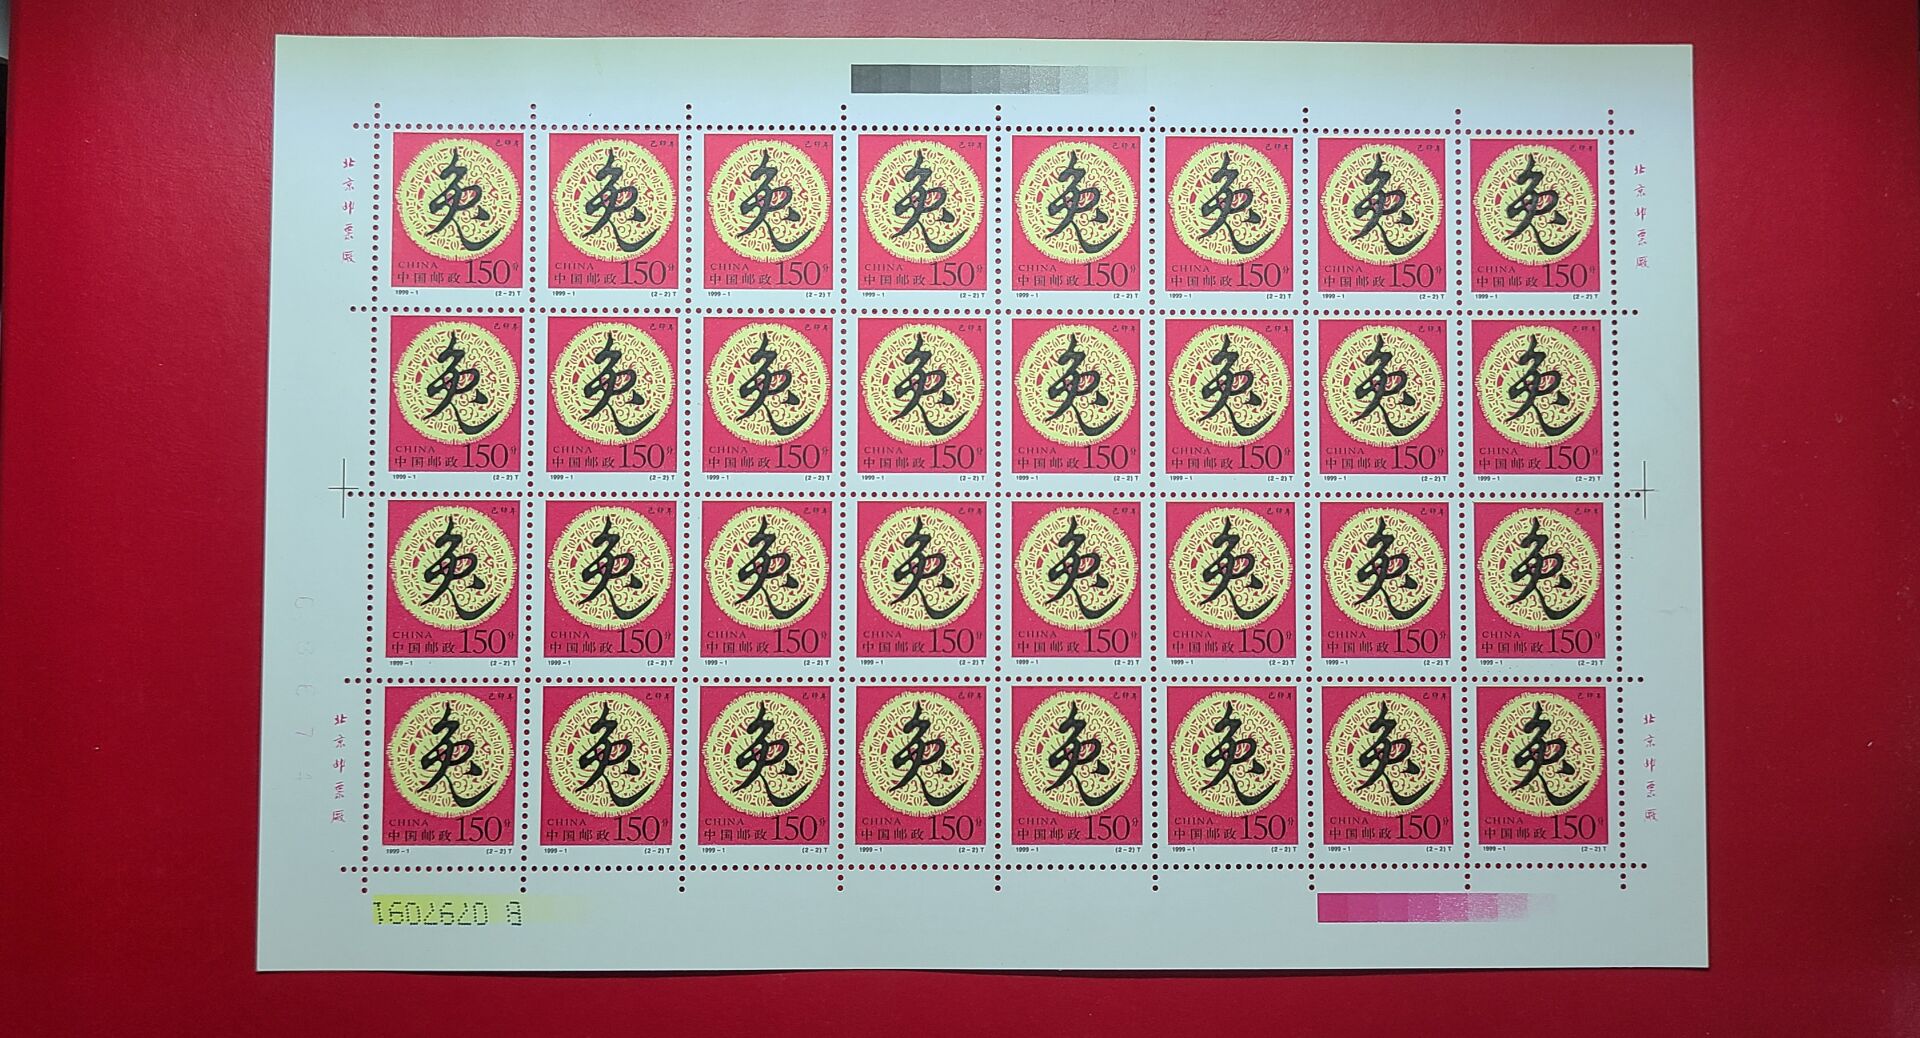 北京邮票厂
北京邮票厂
己卯年 己卯年 己卯年 己卯年 己卯年 己卯年 己卯年 己卯年
兔 兔 兔 兔 兔 兔 兔 兔
CHINA CHINA CHINA CHINA CHINA CHINA CHINA CHINA
中国邮政 150分 中国邮政 150分 中国邮政 150分 中国邮政 150分 中国邮政 150分 中国邮政 150分 中国邮政 150分 中国邮政 150分
1999-1 (2-2)T 1999-1 (2-2)T 1999-1 (2-2)T 1999-1 (2-2)T 1999-1 (2-2)T 1999-1 (2-2)T 1999-1 (2-2)T 1999-1 (2-2)T
己卯年 己卯年 己卯年 己卯年 己卯年 己卯年 己卯年 己卯年
兔 兔 兔 兔 兔 兔 兔 兔
CHINA CHINA CHINA CHINA CHINA CHINA CHINA CHINA
中国邮政 150分 中国邮政 150分 中国邮政 150分 中国邮政 150分 中国邮政 150分 中国邮政 150分 中国邮政 150分 中国邮政 150分
1999-1 (2-2)T 1999-1 (2-2)T 1999-1 (2-2)T 1999-1 (2-2)T 1999-1 (2-2)T 1999-1 (2-2)T 1999-1 (2-2)T 1999-1 (2-2)T
己卯年 己卯年 己卯年 己卯年 己卯年 己卯年 己卯年 己卯年
兔 兔 兔 兔 兔 兔 兔 兔
CHINA CHINA CHINA CHINA CHINA CHINA CHINA CHINA
中国邮政 150分 中国邮政 150分 中国邮政 150分 中国邮政 150分 中国邮政 150分 中国邮政 150分 中国邮政 150分 中国邮政 150分
1999-1 (2-2)T 1999-1 (2-2)T 1999-1 (2-2)T 1999-1 (2-2)T 1999-1 (2-2)T 1999-1 (2-2)T 1999-1 (2-2)T 1999-1 (2-2)T
己卯年 己卯年 己卯年 己卯年 己卯年 己卯年 己卯年 己卯年
兔 兔 兔 兔 兔 兔 兔 兔
CHINA CHINA CHINA CHINA CHINA CHINA CHINA CHINA
中国邮政 150分 中国邮政 150分 中国邮政 150分 中国邮政 150分 中国邮政 150分 中国邮政 150分 中国邮政 150分 中国邮政 150分
1999-1 (2-2)T 1999-1 (2-2)T 1999-1 (2-2)T 1999-1 (2-2)T 1999-1 (2-2)T 1999-1 (2-2)T 1999-1 (2-2)T 1999-1 (2-2)T
北京邮票厂
北京邮票厂